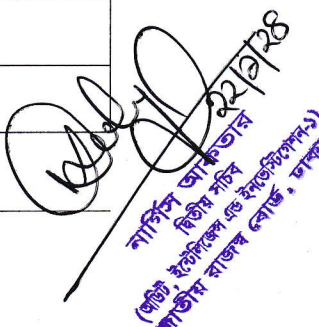 ২২/১/২৪
নার্গিস আকতার
দ্বিতীয় সচিব
(অডিট, ইন্টেলিজেন্স এন্ড ইনভেস্টিগেশন-১)
জাতীয় রাজস্ব বোর্ড, ঢাকা